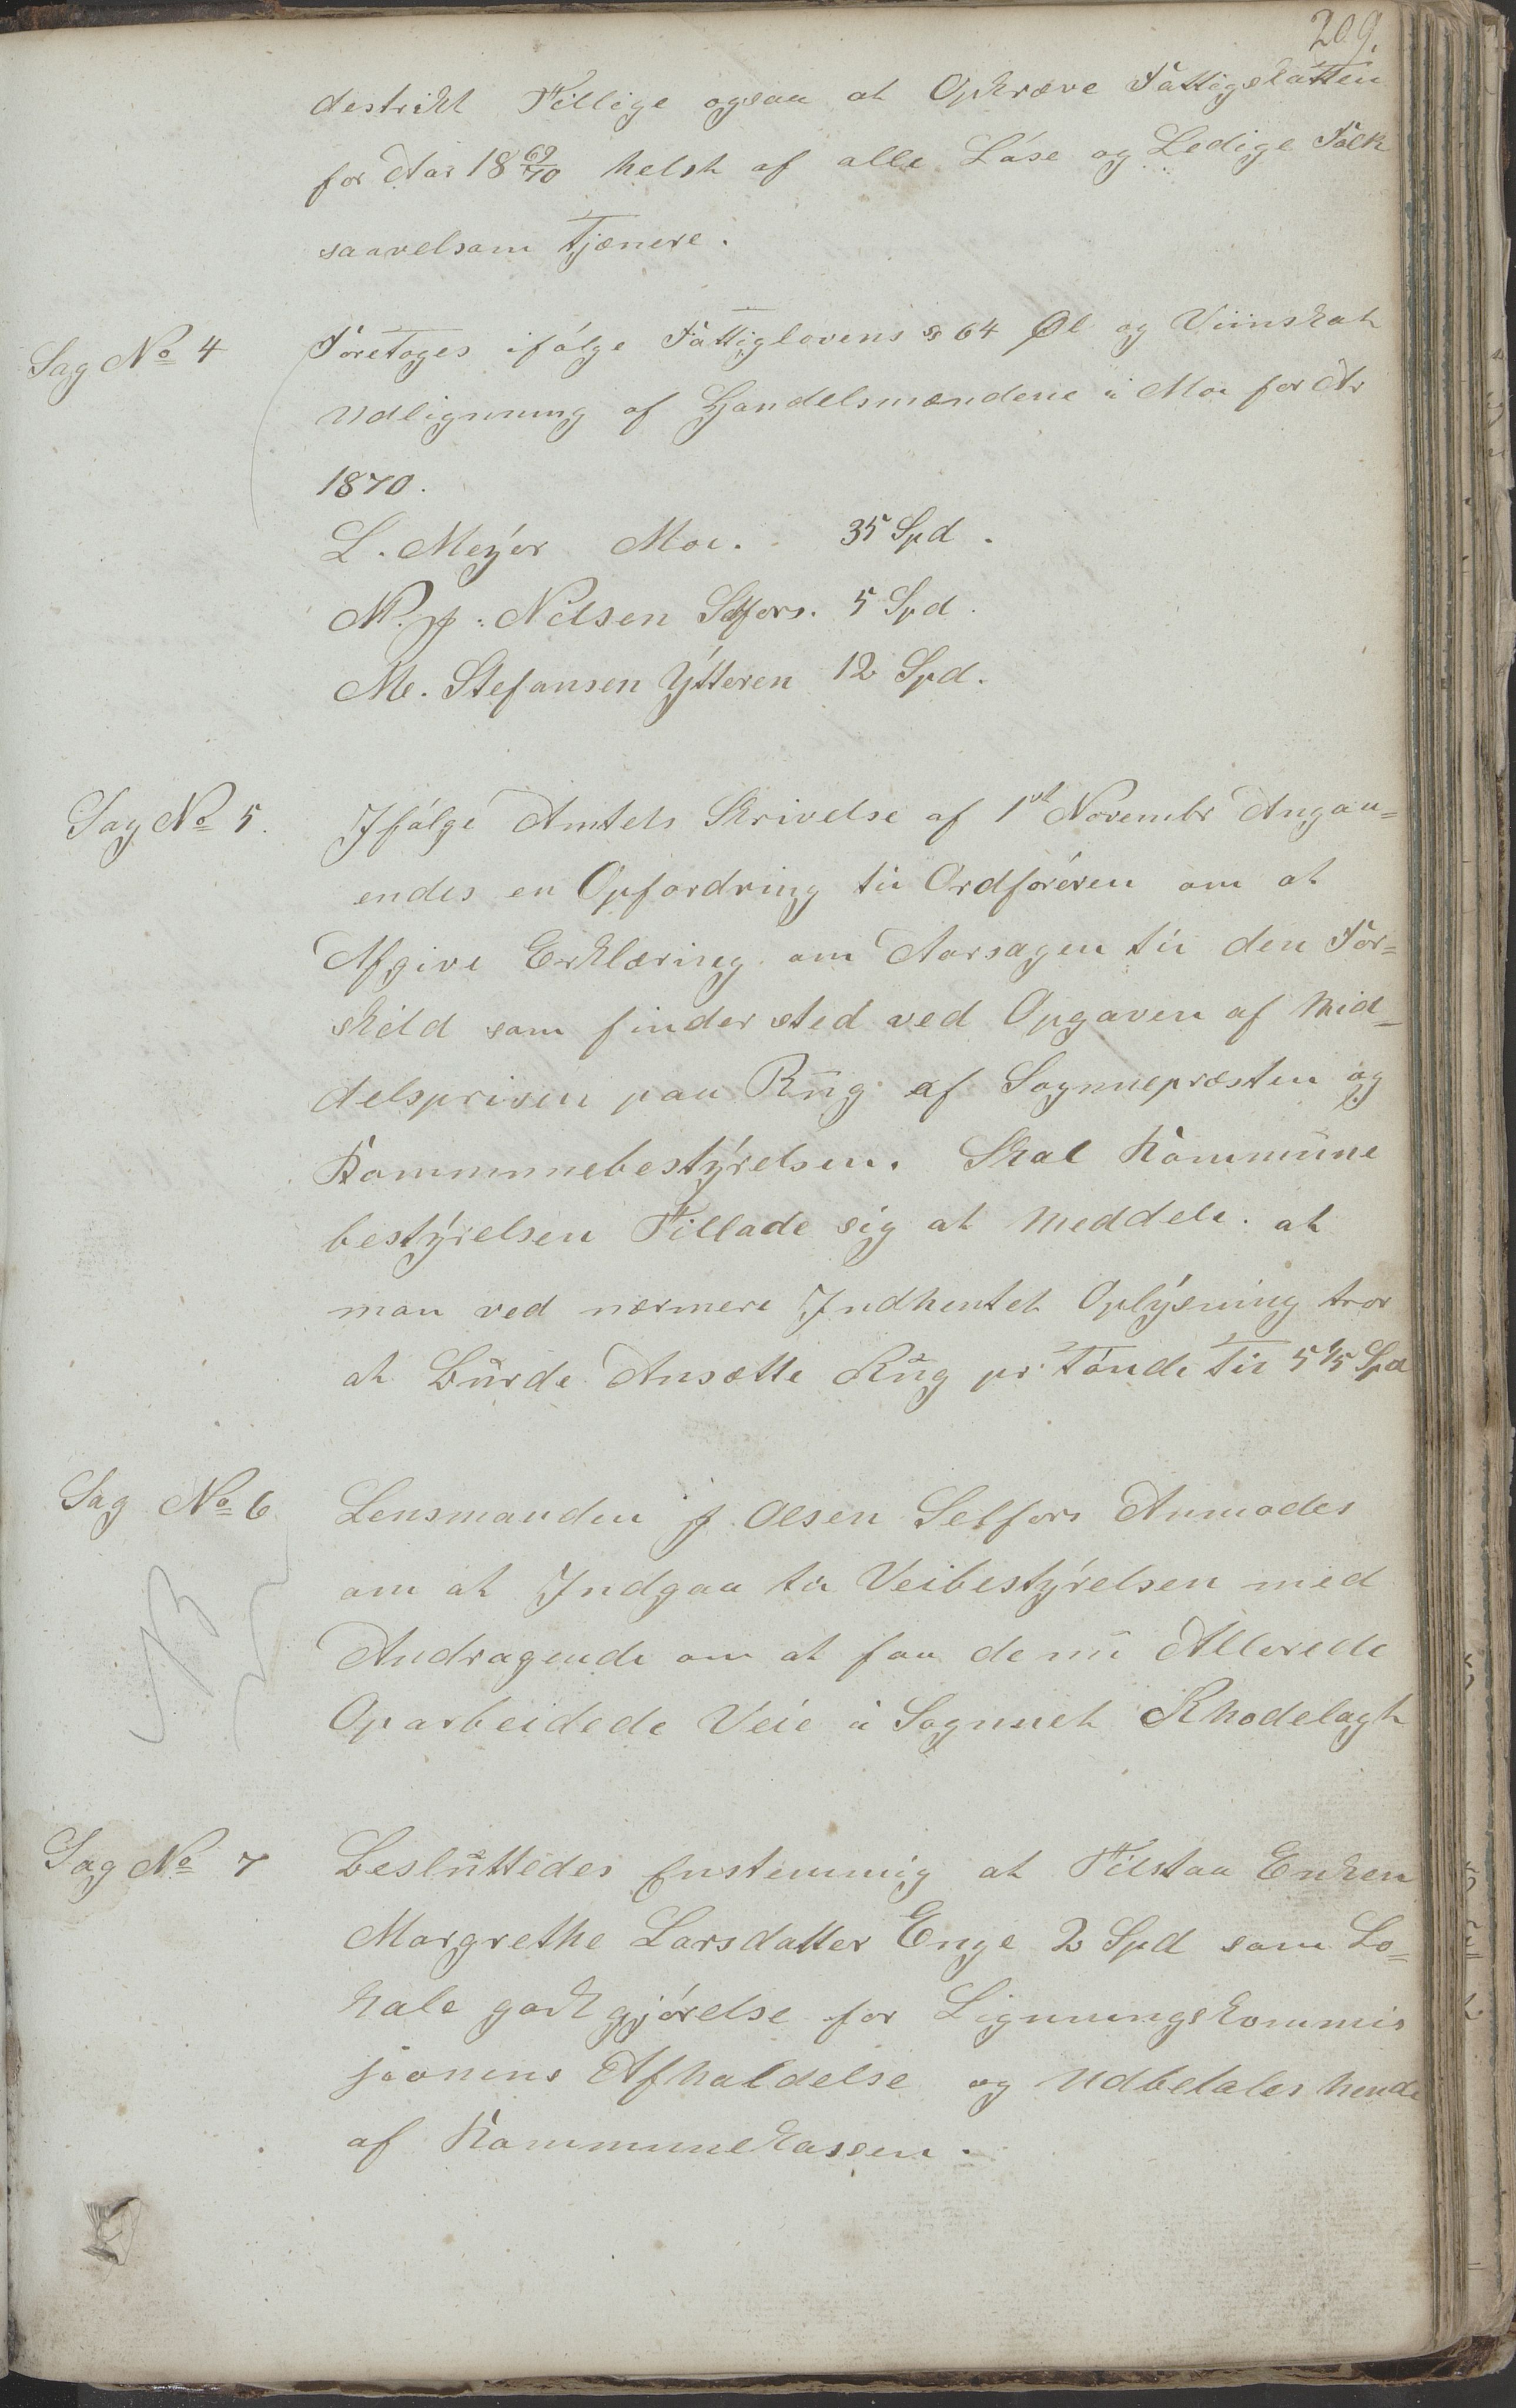 209.
destrikt Tillige ogsaa at Opkræve Fattigskatten
for Aar 18 69/70 helst af alle Løse og Ledige Folk
saavelsom Tjenere.
Sag No 4 Foretoges ifølge Fattiglovens § 64 Øl og Viinskat
Udligning af Handelsmændene i Moe for Ar
1870.
L. Meyer Moe. 35 Spd.
N. J. Nilsen Selfors. 5 Spd.
M. Stefansen Ytteren 12 Spd.
Sag No 5. Ifølge Amtets Skrivelse af 1st Novembr Angaa=
endes en Opfordring til Ordføreren om at
Afgive Erklæring om Aarsagen til den For=
skild som finder sted ved Opgaven af Mid=
delsprisen paa Rug af Sognnepræsten og
Kommunebestyrelsen. Skal Kommune
bestyrelsen Tillade sig at Meddele. at
man ved nærmere Indhentet Oplysning tror
at Burde Ansætte Rug pr Tønde til 5 1/5 Spd
Sag No 6 Lensmanden J. Olsen Selfors Anmodes
om at Indgaa til Veibestyrelsen med
Andragende om at faa de nu Allerede
Oparbeidede Veie i Sognnet Rhodelagt
Sag No 7 Besluttedes Enstemmig at Tilstaa Enken
Margrethe Larsdatter Enge 2 Spd som Lo=
kale godtgjørelse for Ligningskommis
jionens Afholdelse og Udbetales hende
af Kommunekassen.